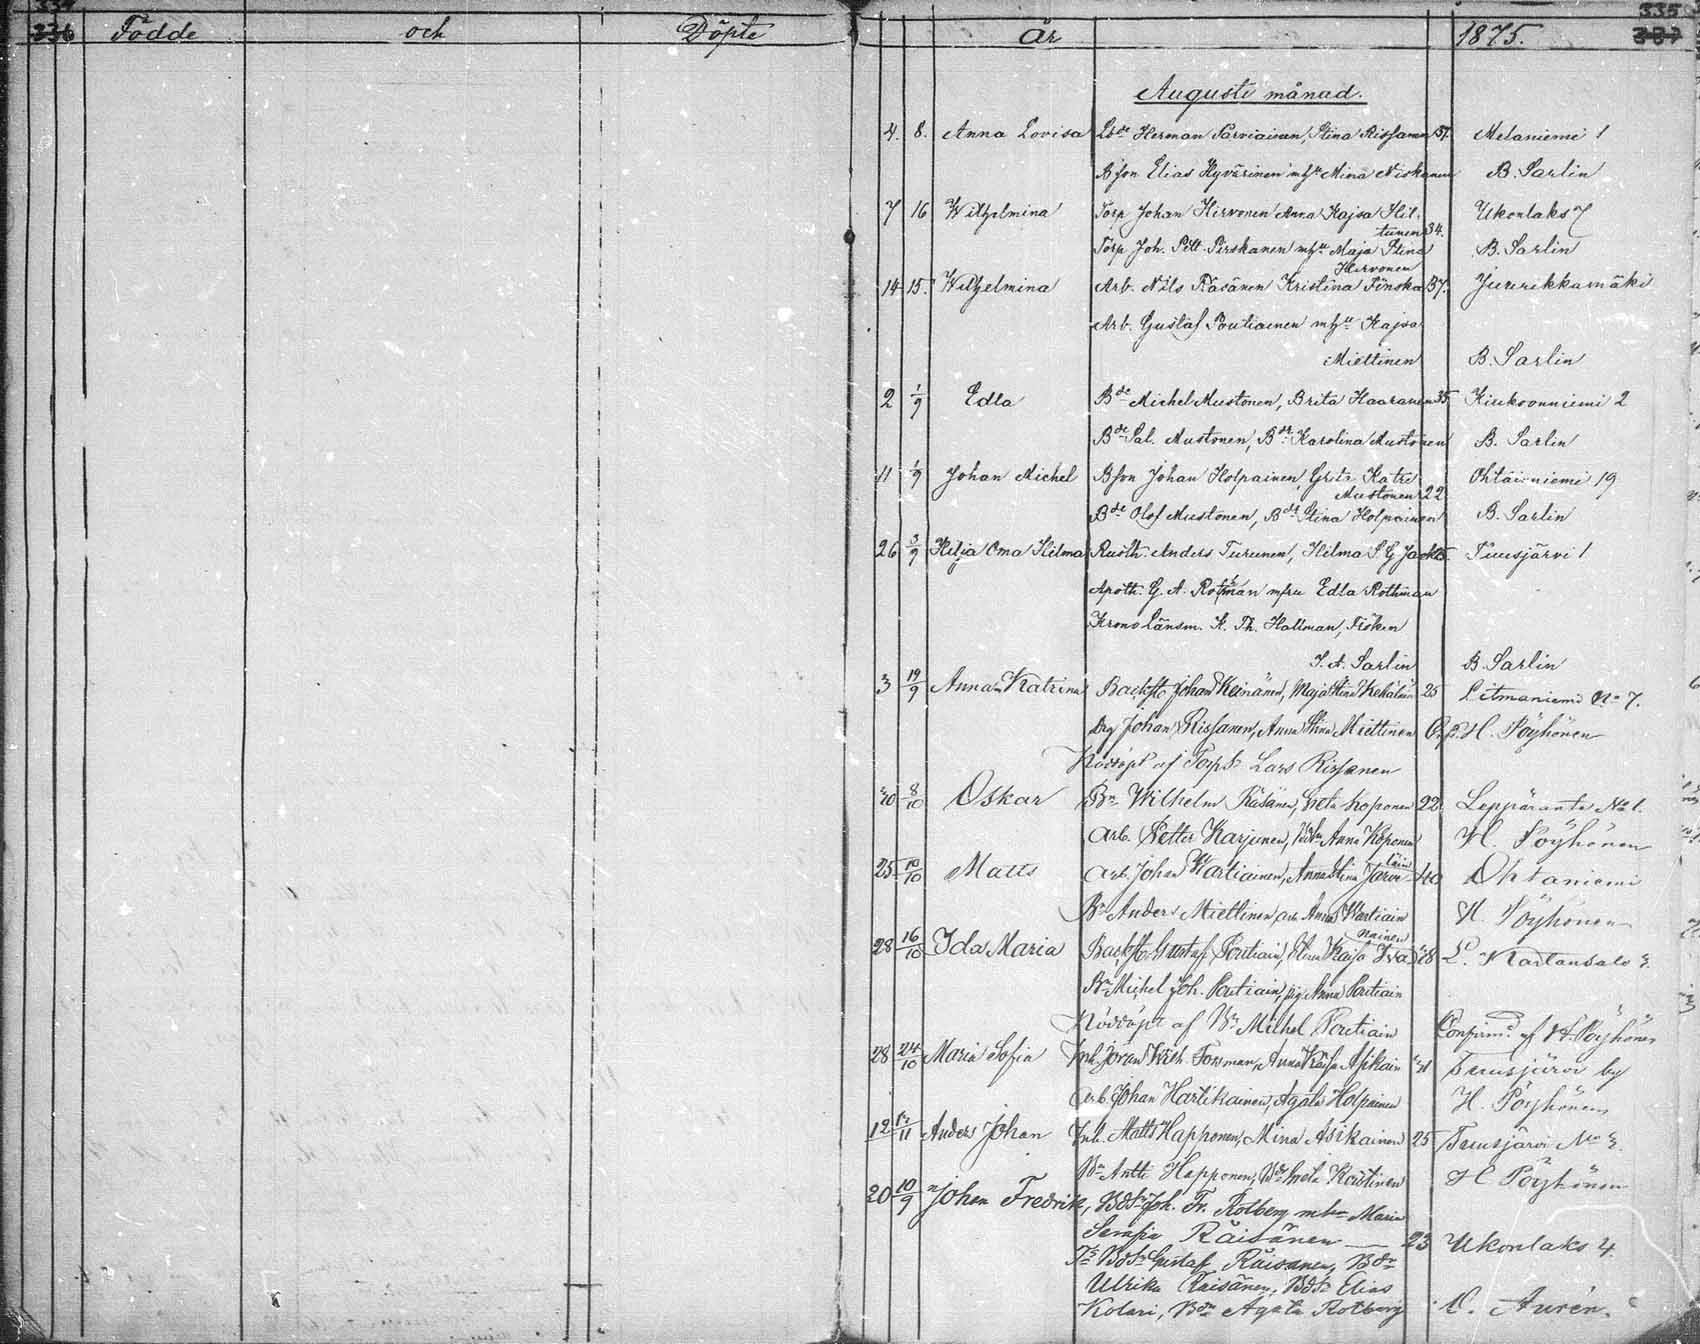 334
336 Födde och Döpte År 1875. 335
337
Augusti månad.
4. 8. Anna Lovisa Herman Parviainen, Stina Rissanen 37. Melaniemi 1
Bson Elias Hyvärinen Mina Niskanen B. Sarlin
7 16 Wilhelmina Torp. Johan Hirvonen Anna Kajsa Hil- Ukonlaks 7
tunen 34.
Torp. Joh. Pett. Pirskanen Maja Stina B. Sarlin
Hirvonen
14 15. Wilhelmina Arb. Nils Räsänen Kristina Finska 37. Juurikkamäki
Arb. Gustaf Poutiainen Kajsa
Miettinen B. Sarlin
2 1/9 Edla Bde Michel Mustonen, Brita Haaranen 35 Kiukoonniemi 2
Bde Sal. Mustonen, Bdr Karolina Mustonen B. Sarlin
11 1/9 Johan Michel Bson Johan Holpainen, Greta Katri Ohtaniemi 19
Mustonen 22
Bde Olof Mustonen, Bdr Stina Holpainen B. Sarlin
26 3/9 Hilja Oma Hilma Rusth. Anders Turunen, Hilma S. G. Tuusjärvi 1
Apoth. G. A. Rothman mfru Edla Rothman
Krono Länsm. K. Th. Hallman, Fröken
S. A. Sarlin B. Sarlin
3 19/9 Anna Katrina Backst. Johan Keinänen, Maja Stina 25 Litmaniemi No 7.
Drg Johan Rissanen, Anna Stina Miettinen H. Pöyhönen
Nöddöpt af Torp. Lars Rissanen
20 8/10 Oskar Bn Wilhelm Räsänen, Greta Koponen 22 Leppäranta No 1.
Arb. Petter Karjunen, Anna Koponen H. Pöyhönen
25 10/10 Matts Arb. Johan Wartiainen, Anna Stina Järve 40 Ohtaniemi
läin
Bn Anders Miettinen, Anna Wartiain H. Pöyhönen
28 16/10 Ida Maria Backst. Gustaf Poutiain, Kajsa 28 L. Kartansalo
nainen
Bn Michel Joh. Poutiain, pig. Anna Poutiain
Nöddöpt af Bn Michel Poutiain Confirm. af H. Pöyhönen
28 24/10 Maria Sofia Inh. Johan Wilh. Forsman, Anna Kajsa Asikain Tuusjärvi by
Arb. Johan Hartikainen, Agata Holpainen H. Pöyhönen
12 /11 Anders Johan Inh. Matts Happonen, Mina Asikainen 25 Tuusjärvi No
Bn Antti Happonen, H Pöyhönen
20 10/9 Johan Fredrik, Bds Joh. Fr. Rotberg Maria
Serafia Räisänen — 23 Ukonlaks 4.
Bds Gustaf Räisänen, Bdr
Ulrika Räisänen, Bds Elias
Kolari, Bdr Agata Rotberg Aurén.